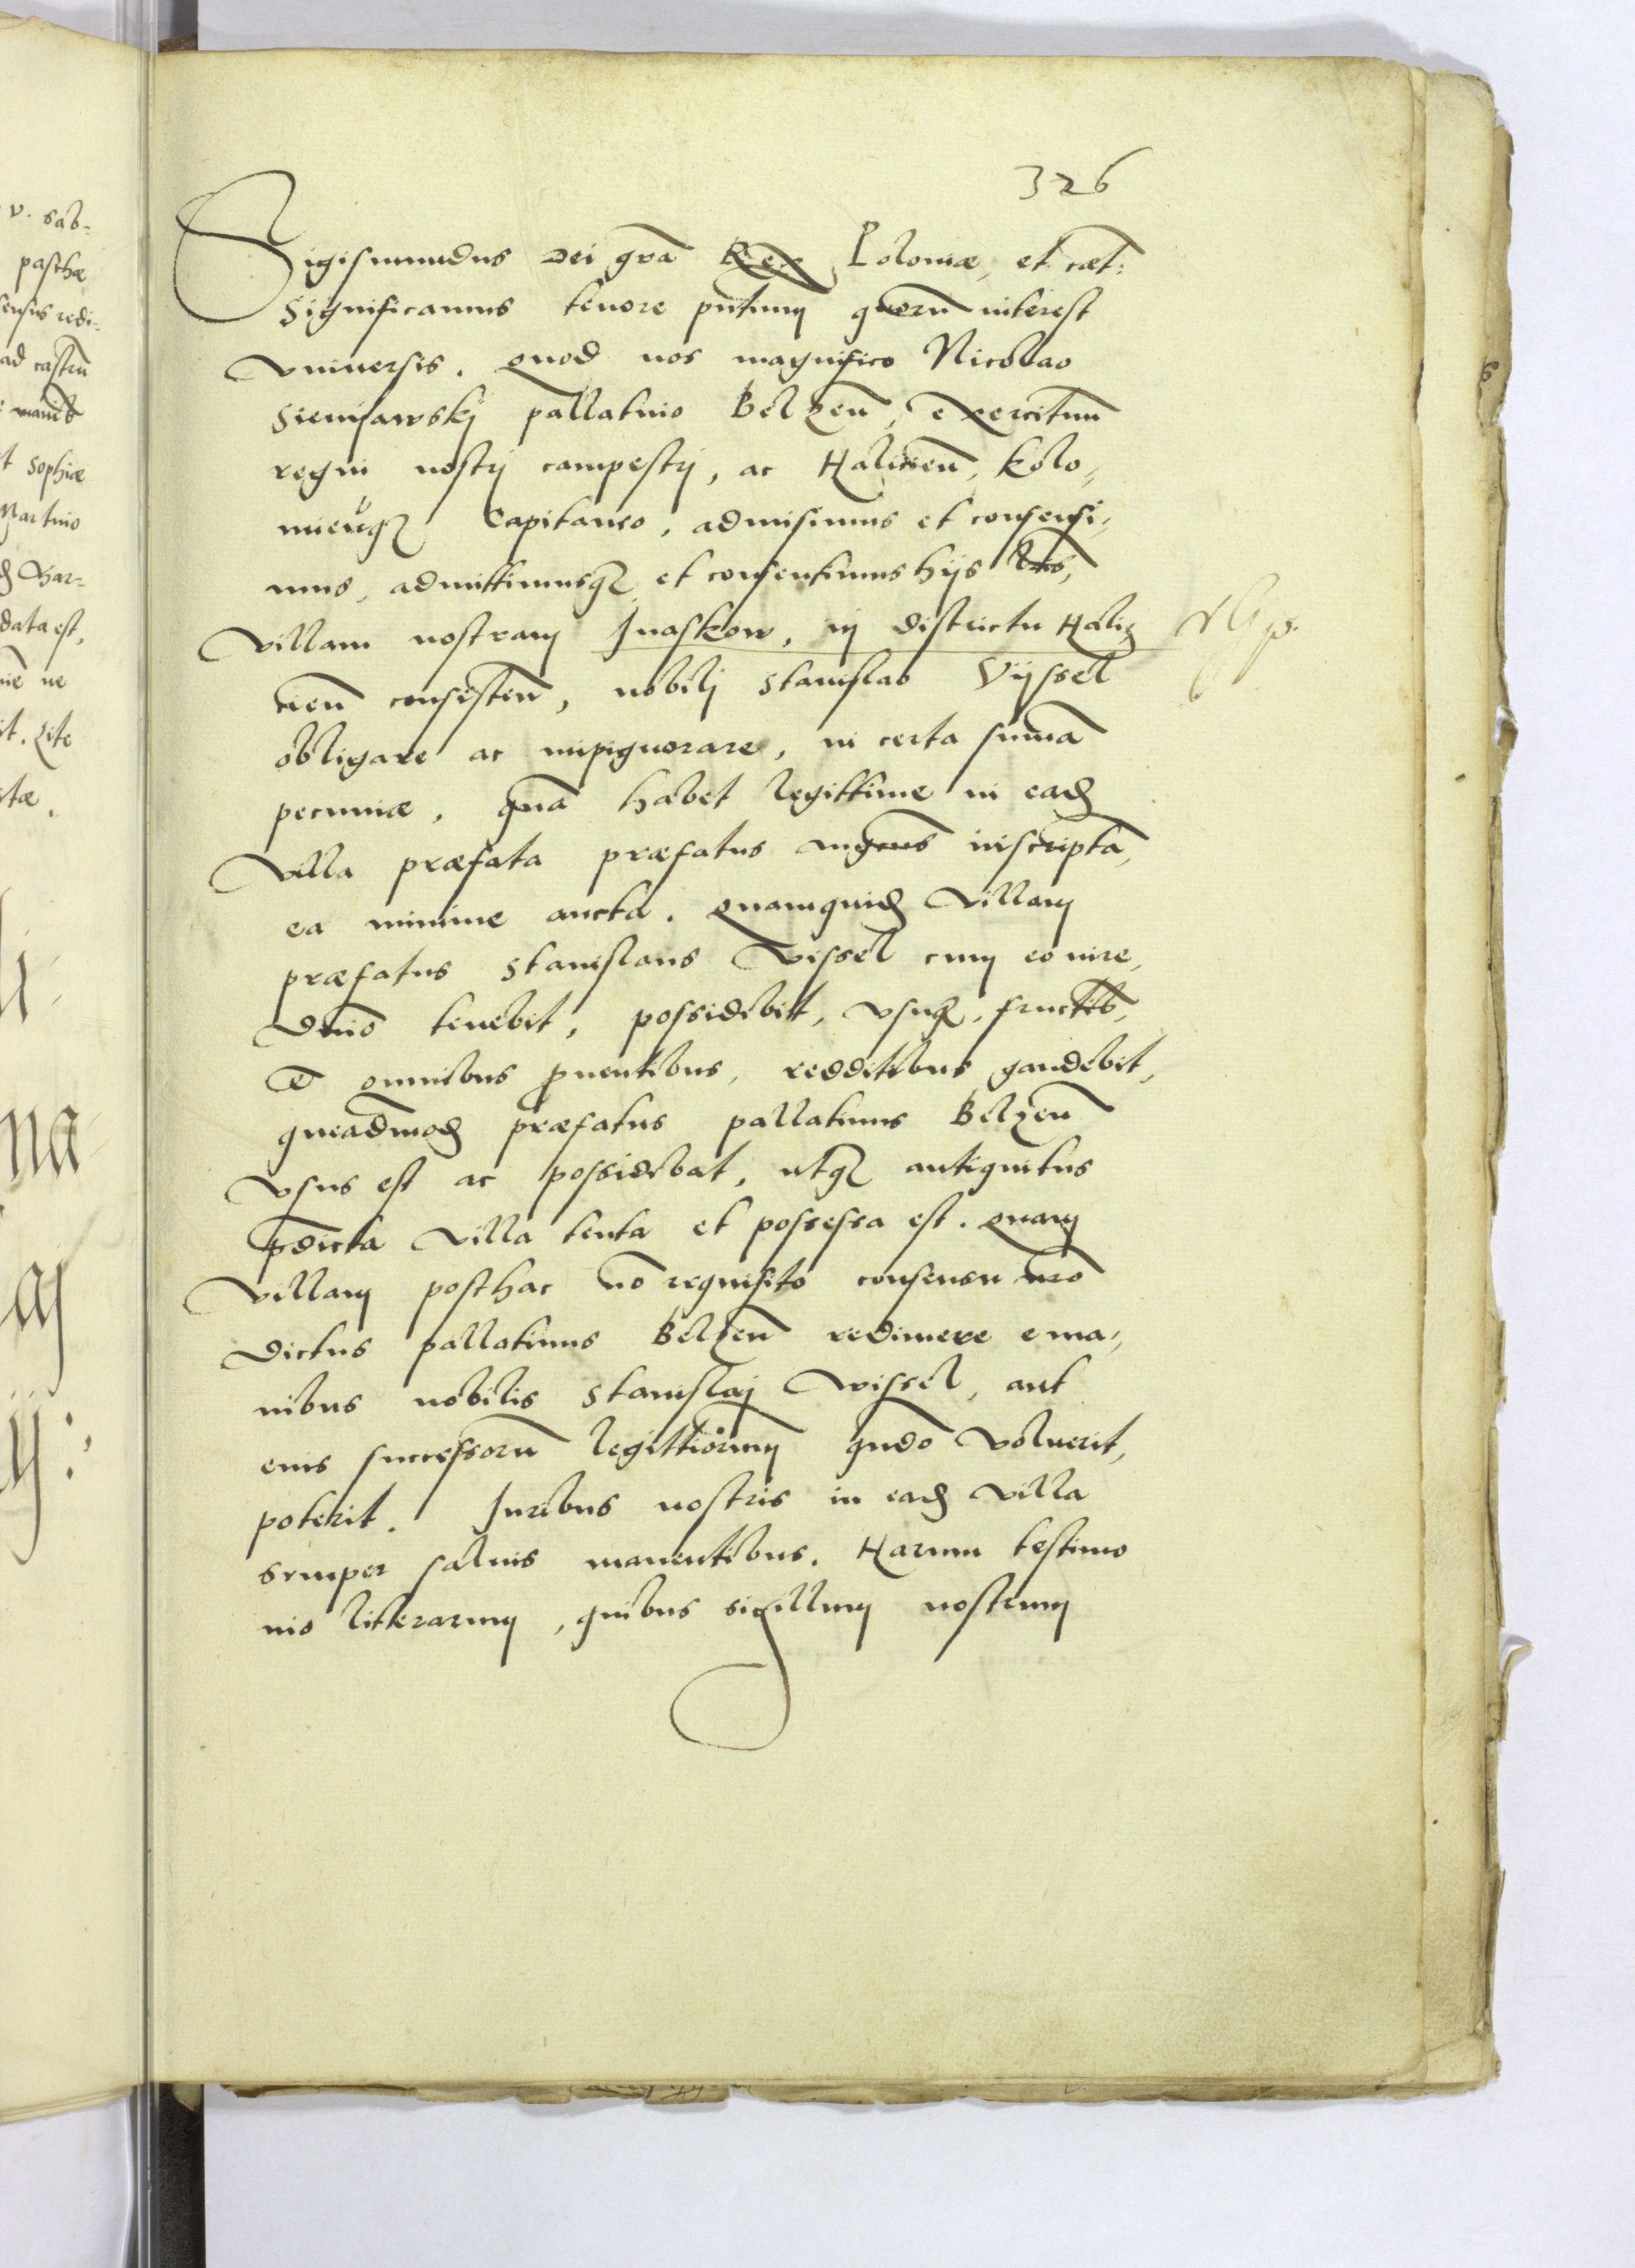 326
Sigismundus Dei gra᷃ Rex Poloniæ, et cæt:
Significamus tenore pn̄tium quorū interest
vniuersis. Quod nos magnifico Nicolao
Sieniawskj pallatino Belzen̄, exercituum
regni nostrj campestrj, ac Halicien̄, Kolo,
mien̄q₃ Capitaneo, admisimus et consensi,
mus, admittimusq₃ et consentimus hijs lr̄is,
villam nostram Jwaskow, in districtu Halic
cien̄ consisten̄, nobilj Stanislao Vijssel
obligare ac inpignorare, in certa summa
pecuniæ, quā habet legittime in ead₃
villa præfata præfatus mgcus inscriptā,
ea minime aucta. Quamquid₃ villam
præfatus Stanislaus Vissel cum eo iure,
dn̄io tenebit, possidebit, vsuq₃, fructib₉,
et omnibus prouentibus, redditibus gaudebit,
queadmod₃ præfatus pallatinus Belzen̄
vsus est ac possidebat, utq₃ antiquitus
pdicta villa tenta et possessa est. Quam
villam posthac nō requisito consensu nr̄o
dictus pallatinus Belzen̄ redimere e ma,
nibus nobilis Stanislaj Wissel, aut
eius successorū legittiorum qn̄do voluerit,
poterit. Juribus nostris in ead₃ villa
semper saluis manentibus. Harum testimo
nio literarum, quibus sigillum nostrum
v. sab=
paschæ
ensis redi=
ad castrū
manib₉
t Sophiæ
Martino
data est,